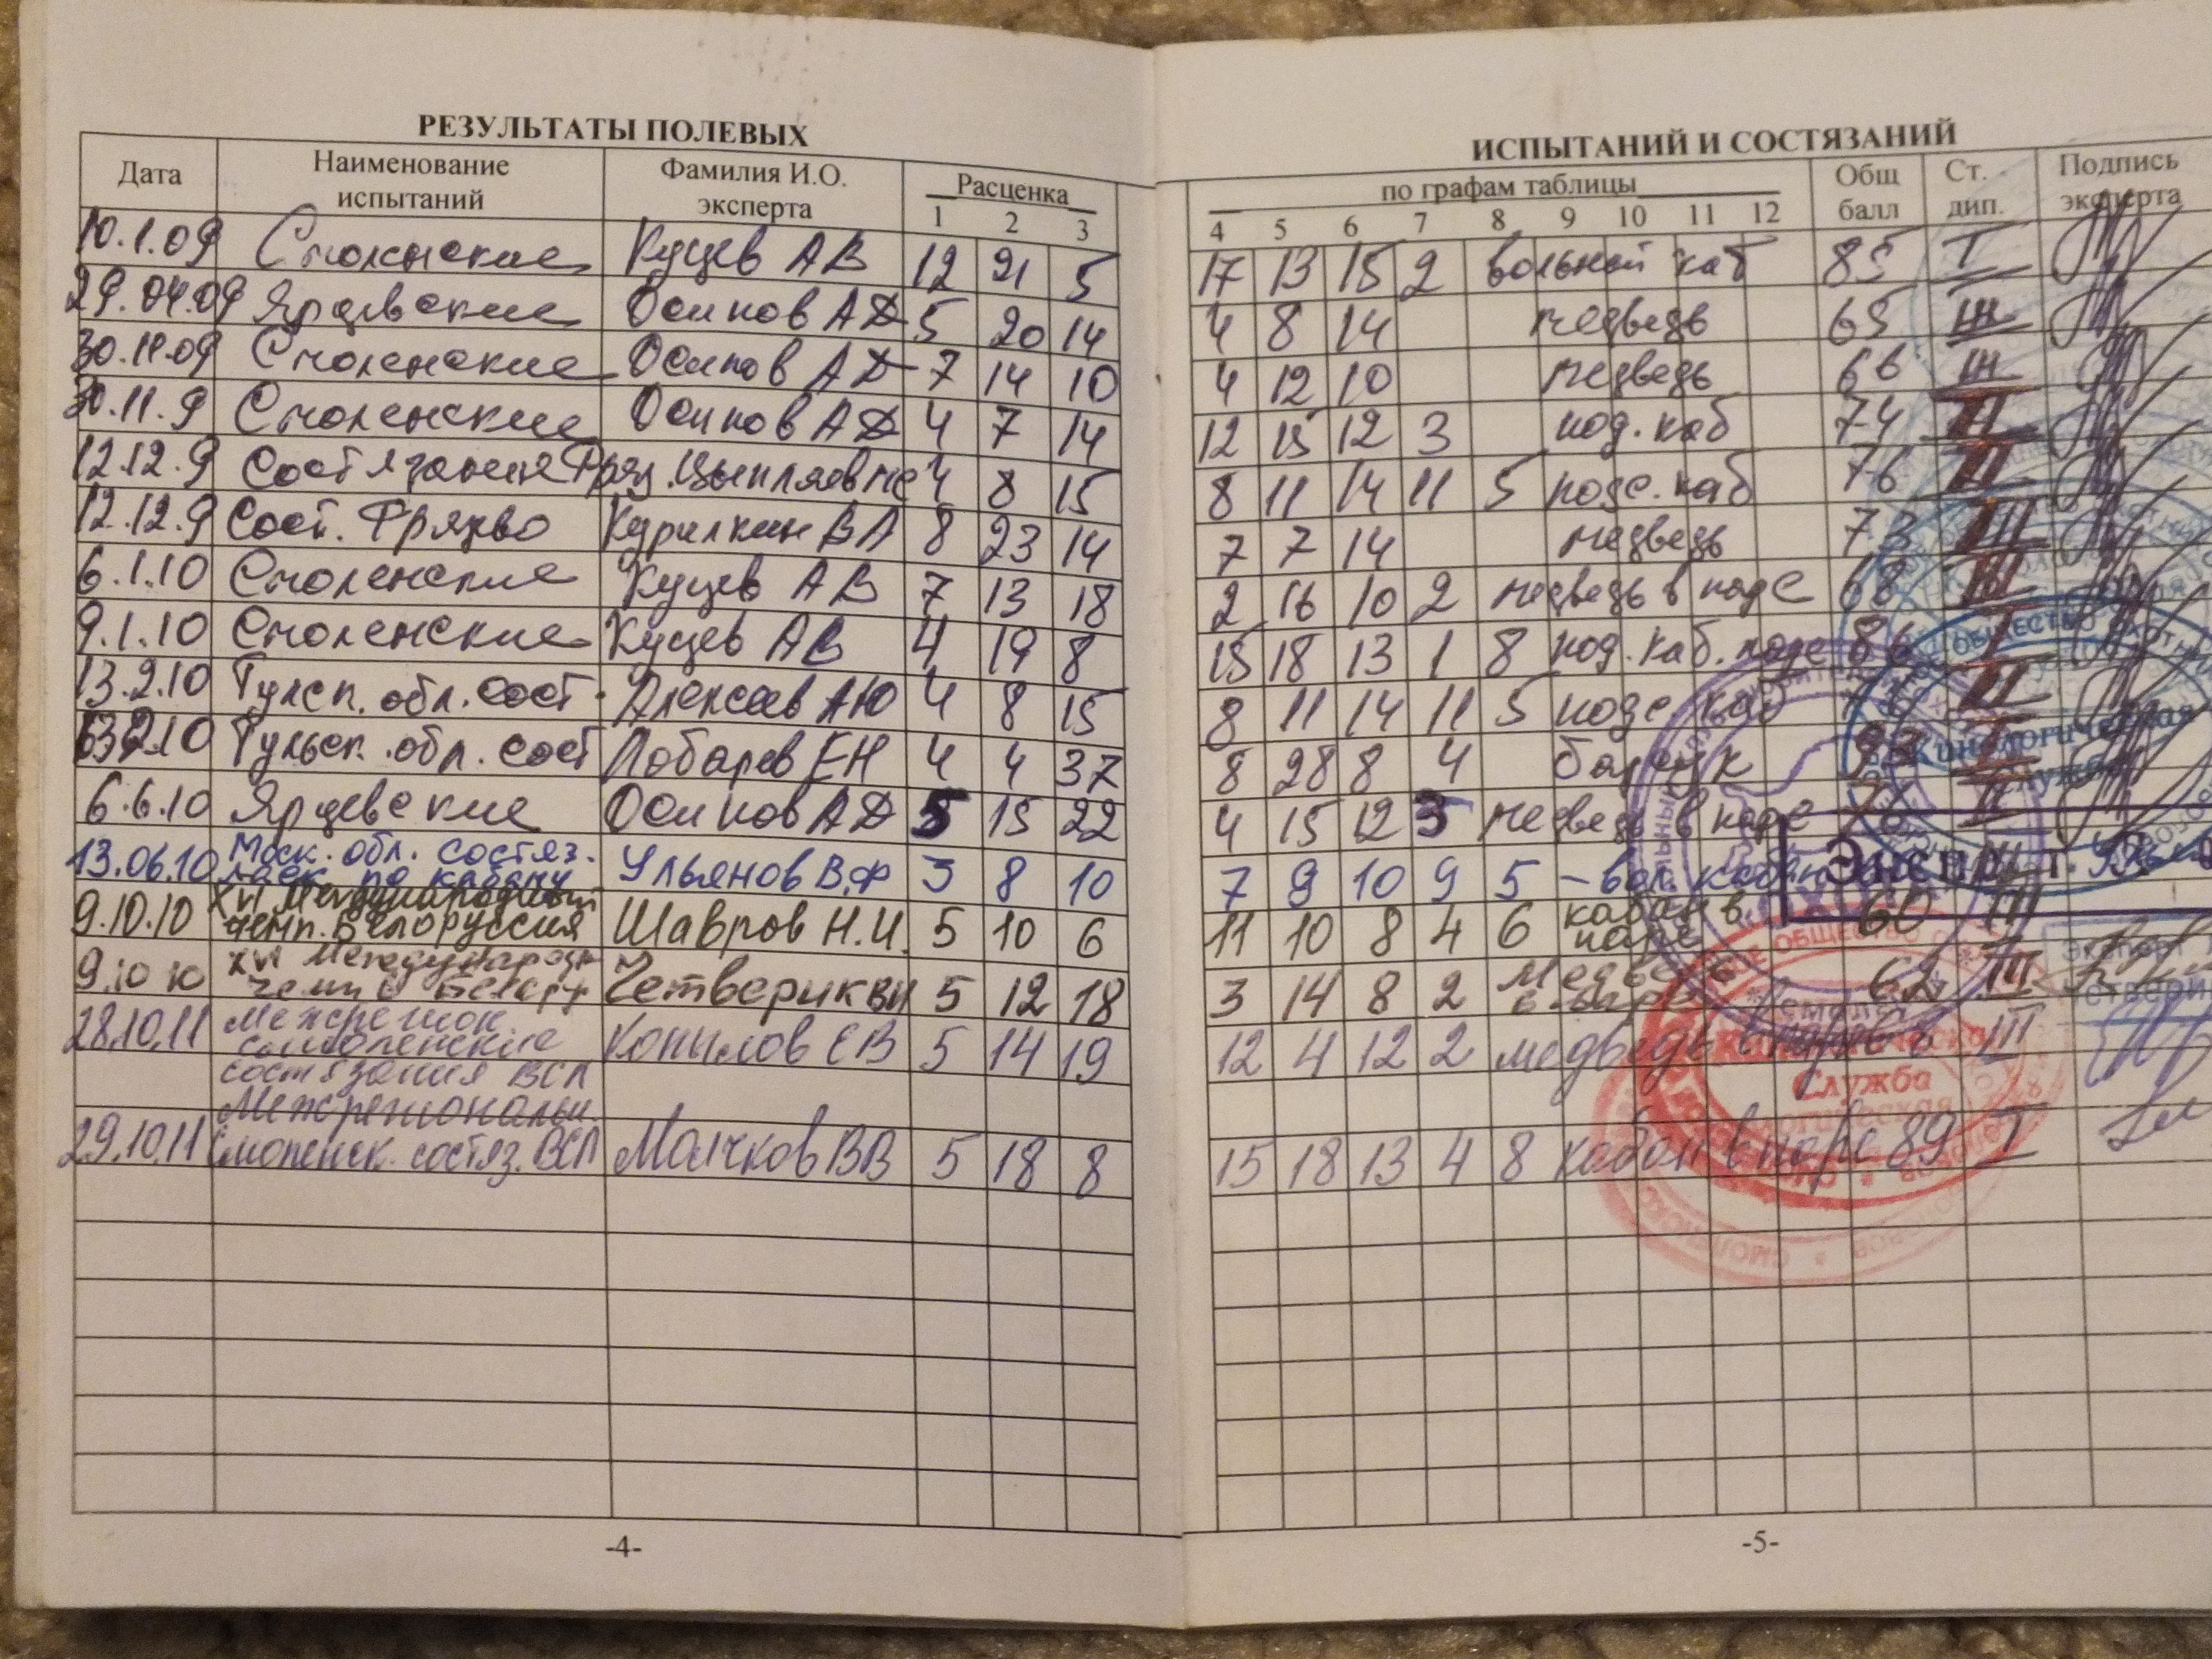 РЕЗУЛЬТАТЫ ПОЛЕВЫХ ИСПЫТАНИЙ И СОСТЯЗАНИЙ
Дата Наименование испытаний Фамилия И.О. эксперта Расценка по графам таблицы Общ балл Ст. дип. Подпись эксперта
1 2 3 4 5 6 7 8 9 10 11 12
10.1.09 Смоленские Куцев АВ 12 21 5 17 13 15 2 вольный каб 85 I
29.04.09 Ярцевские Осипов АД 5 20 14 4 8 14 медведь 65 III
30.11.09 Смоленские Осипов АД 7 14 10 4 12 10 медведь 66 III
30.11.9 Смоленские Осипов АД 4 7 14 12 15 12 3 под. каб 74 II
12.12.9 Состязания Цыпляев 4 8 15 8 11 14 11 5 подс. каб 76 II
12.12.9 Сост. Фряново Курилкин ВА 8 23 14 7 7 14 медведь 73 III
6.1.10 Смоленские Куцев АВ 7 13 18 2 16 10 2 медведь в паре 68 III
9.1.10 Смоленские Куцев АВ 4 19 8 15 18 13 1 8 под. каб. паре 86 I
13.2.10 Тульск. обл. сост. Алексеев АЮ 4 8 15 8 11 14 11 5 подс каб 76 II
13.2.10 Тульск. обл. сост Лобарев ЕН 4 4 37 8 28 8 4 барсук 93 I
6.6.10 Ярцевские Осипов АД 5 15 22 4 15 12 3 медведь в паре 76 II
13.06.10 Моск. обл. состяз. лаек по кабану Ульянов В.Ф 3 8 10 7 9 10 9 5 – вол. кабан III
9.10.10 XVI Международный чемп. Белоруссия Шавров Н.И. 5 10 6 11 10 8 4 6 кабан в паре 60 III
9.10 10 XVI Междунаро Четверик ВИ 5 12 18 3 14 8 2 медведь в паре 62 III
28.10.11 Межрегион. смоленские состязания ВСЛ Копылов ЕВ 5 14 19 12 4 12 2 медведь в паре III
29.10.11 Межрегиональн. Смоленск. состяз. ВСЛ Молчков ВВ 5 18 8 15 18 13 4 8 кабан в паре 89 I
Кинологическая Служба
Эксперт
Служба
-4-
-5-